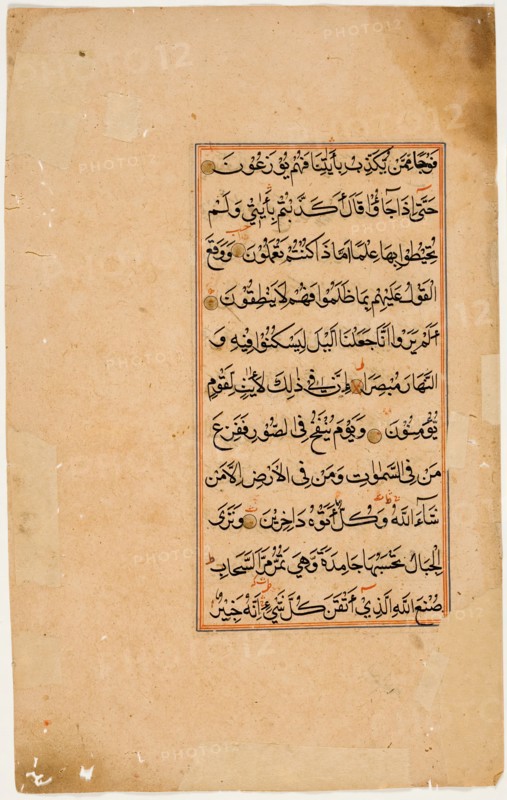 فَوْجًا مِمَّن يُكَذِّبُ بِآيَاتِنَا فَهُمْ يُوزَعُونَ
حَتَّىٰ إِذَا جَاؤُا قَالَ أَكَذَّبْتُمْ بِآيَاتِي وَلَمْ
تُحِيطُوا بِهَا عِلْمًا أَمَّا ذَا كُنْتُمْ تَعْمَلُونَ وَوَقَعَ
الْقَوْلُ عَلَيْهِمْ بِمَا ظَلَمُوا فَهُمْ لَا يَنْطِقُونَ
أَلَمْ يَرَوْا أَنَّا جَعَلْنَا الَّيْلَ لِيَسْكُنُوا فِيهِ وَ
النَّهَارَ مُبْصِرًا إِنَّ فِي ذٰلِكَ لَآيَاتٍ لِقَوْمٍ
يُؤْمِنُونَ وَيَوْمَ يُنْفَخُ فِي الصُّورِ فَفَزِعَ
مَنْ فِي السَّمٰوَاتِ وَمَنْ فِي الْأَرْضِ إِلَّا مَنْ
شَاءَ اللّٰهُ وَكُلٌّ أَتَوْهُ دَاخِرِينَ وَتَرَى
الْجِبَالَ تَحْسَبُهَا جَامِدَةً وَهِيَ تَمُرُّ مَرَّ السَّحَابِ
صُنْعَ اللّٰهِ الَّذِي أَتْقَنَ كُلَّ شَيْءٍ إِنَّهُ خَبِيرٌ
PHOTO12